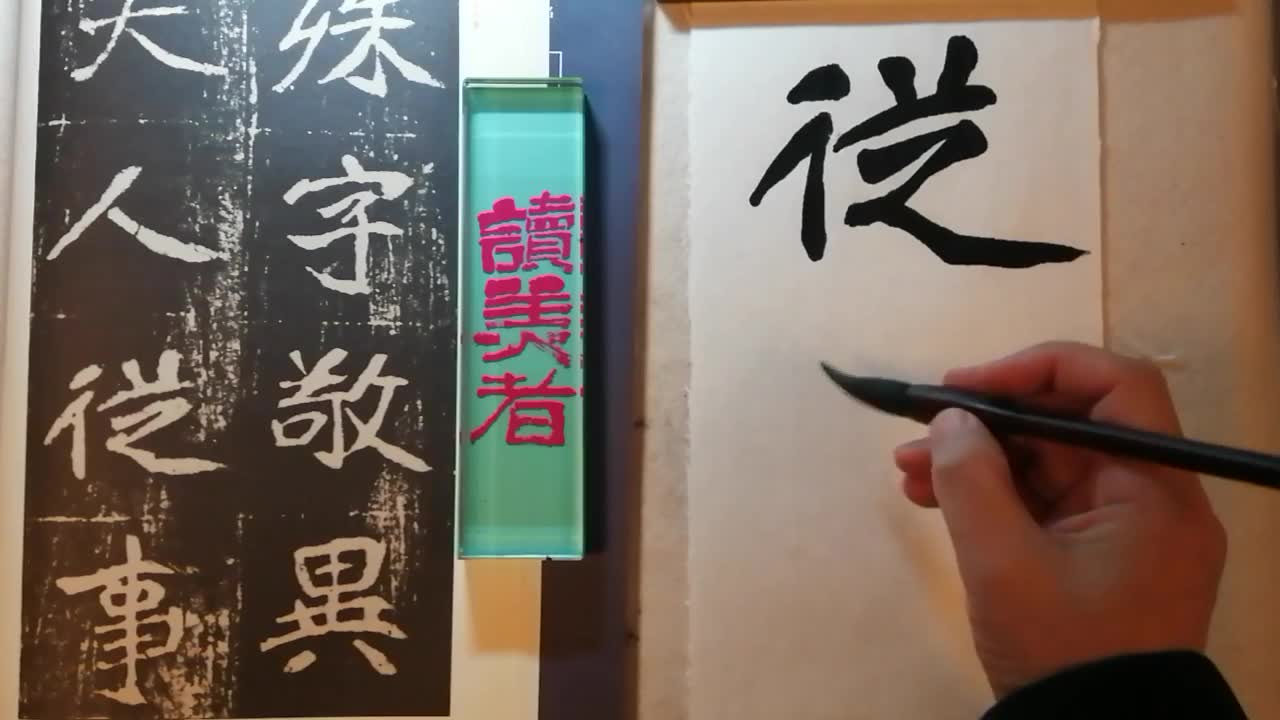 殊字敬異
人從事
讀美者
從